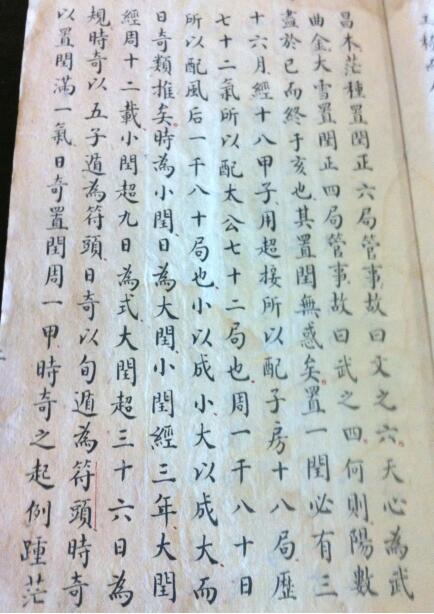 昌木茫種置閏正六局管事故曰文之六天心為武
曲金大雪置閏正四局管事故曰武之四何則陽數
盡於巳而終于亥也其置閏無惑矣置一閏必有三
十六月經十八甲子用超接所以配子房十八局歷
七十二氣所以配太公七十二局也周一千八十日
所以配風后一千八十局也小以成小大以成大而
日奇類推矣時為小閏日為大閏小閏經三年大閏
經周十二載小閏超九日為式大閏超三十六日為
規時奇以五子遁為符頭日奇以旬遁為符頭時奇
以置閏滿一氣日奇置閏周一甲時奇之起例踵茫